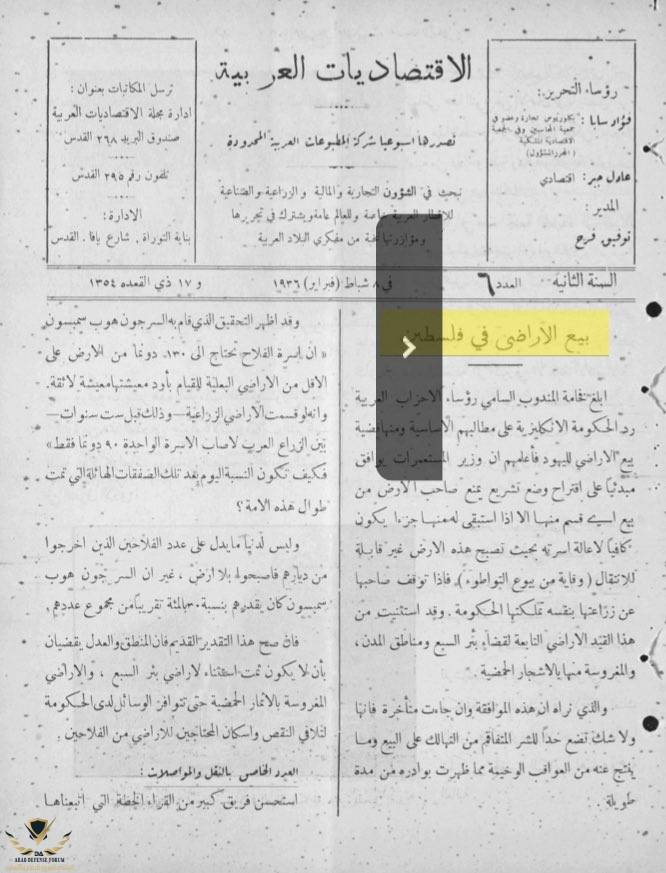 رؤساء التحرير:
فؤاد سابا:
بكالوريوس تجارة وعضو في
جمعية المحاسبين وفي الجمعية
الاقتصادية الملكية
(المحرر المسؤول)
عادل جبر: اقتصادي
المدير:
توفيق فرح
الاقتصاديات العربية
تصدرها اسبوعيا شركة المطبوعات العربية المحدودة
تبحث في الشؤون التجارية والمالية والزراعية والصناعية
للاقطار العربية خاصة وللعالم عامة ويشترك في تحريرها
ومؤازرتها نخبة من مفكري البلاد العربية
ترسل المكاتبات بعنوان:
ادارة مجلة الاقتصاديات العربية
صندوق البريد ٢٦٨ القدس
تلفون رقم ٢٩٥ القدس
الادارة:
بناية التوراة، شارع يافا. القدس
السنة الثانية العدد ٦ في ٨ شباط (فبراير) ١٩٣٦ و ١٧ ذي القعده ١٣٥٤
بيع الاراضي في فلسطين
ابلغ فخامة المندوب السامي رؤساء الاحزاب العربية
رد الحكومة الانكليزية على مطالبهم الاساسية ومنها قضية
بيع الاراضي لليهود فأعلمهم ان وزير المستعمرات يوافق
مبدئياً على اقتراح وضع تشريع يمنع صاحب الارض من
بيع اي قسم منها الا اذا استبقى له منها جزءا يكون
كافياً لاعالة اسرته بحيث تصبح هذه الارض غير قابلة
للانتقال (وقاية من بيوع التواطوء)، فاذا توقف صاحبها
عن زراعتها بنفسه تملكتها الحكومة. وقد استثنيت من
هذا القيد الاراضي التابعة لقضاء بئر السبع ومناطق المدن،
والمغروسة منها بالاشجار الحمضية.
والذي نراه ان هذه الموافقة وان جاءت متأخرة فانها
ولا شك تضع حداً للشر المتفاقم من التهالك على البيع وما
ينتج عنه من العواقب الوخيمة مما ظهرت بوادره من مدة
طويلة.
وقد اظهر التحقيق الذي قام به السر جون هوب سمبسون
«ان اسرة الفلاح تحتاج الى ١٣٠ دونما من الارض على
الاقل من الاراضي البعلية للقيام بأود معيشتها معيشة لائقة.
وانه لو قسمت الاراضي الزراعية – وذلك قبل ست سنوات –
بين الزراع العرب لاصاب الاسرة الواحدة ٩٠ دونما فقط»
فكيف تكون النسبة اليوم بعد تلك الصفقات الهائلة التي تمت
طوال هذه الامة؟
وليس لدينا ما يدل على عدد الفلاحين الذين اخرجوا
من ديارهم فاصبحوا بلا ارض، غير ان السر جون هوب
سمبسون كان يقدرهم بنسبة ٣٠ بالمئة تقريبا من مجموع عددهم.
فان صح هذا التقدير القديم فان المنطق والعدل يقضيان
بأن لا يكون ثمت استثناء لاراضي بئر السبع، والاراضي
المغروسة بالاثمار الحمضية حتى تتوافر الوسائل لدى الحكومة
لتلافي النقص واسكان المحتاجين للاراضي من الفلاحين.
العدد الخاص بالنقل والمواصلات:
استحسن فريق كبير من القراء الخطة التي اتبعناها
ARAB DEFENSE FORUM